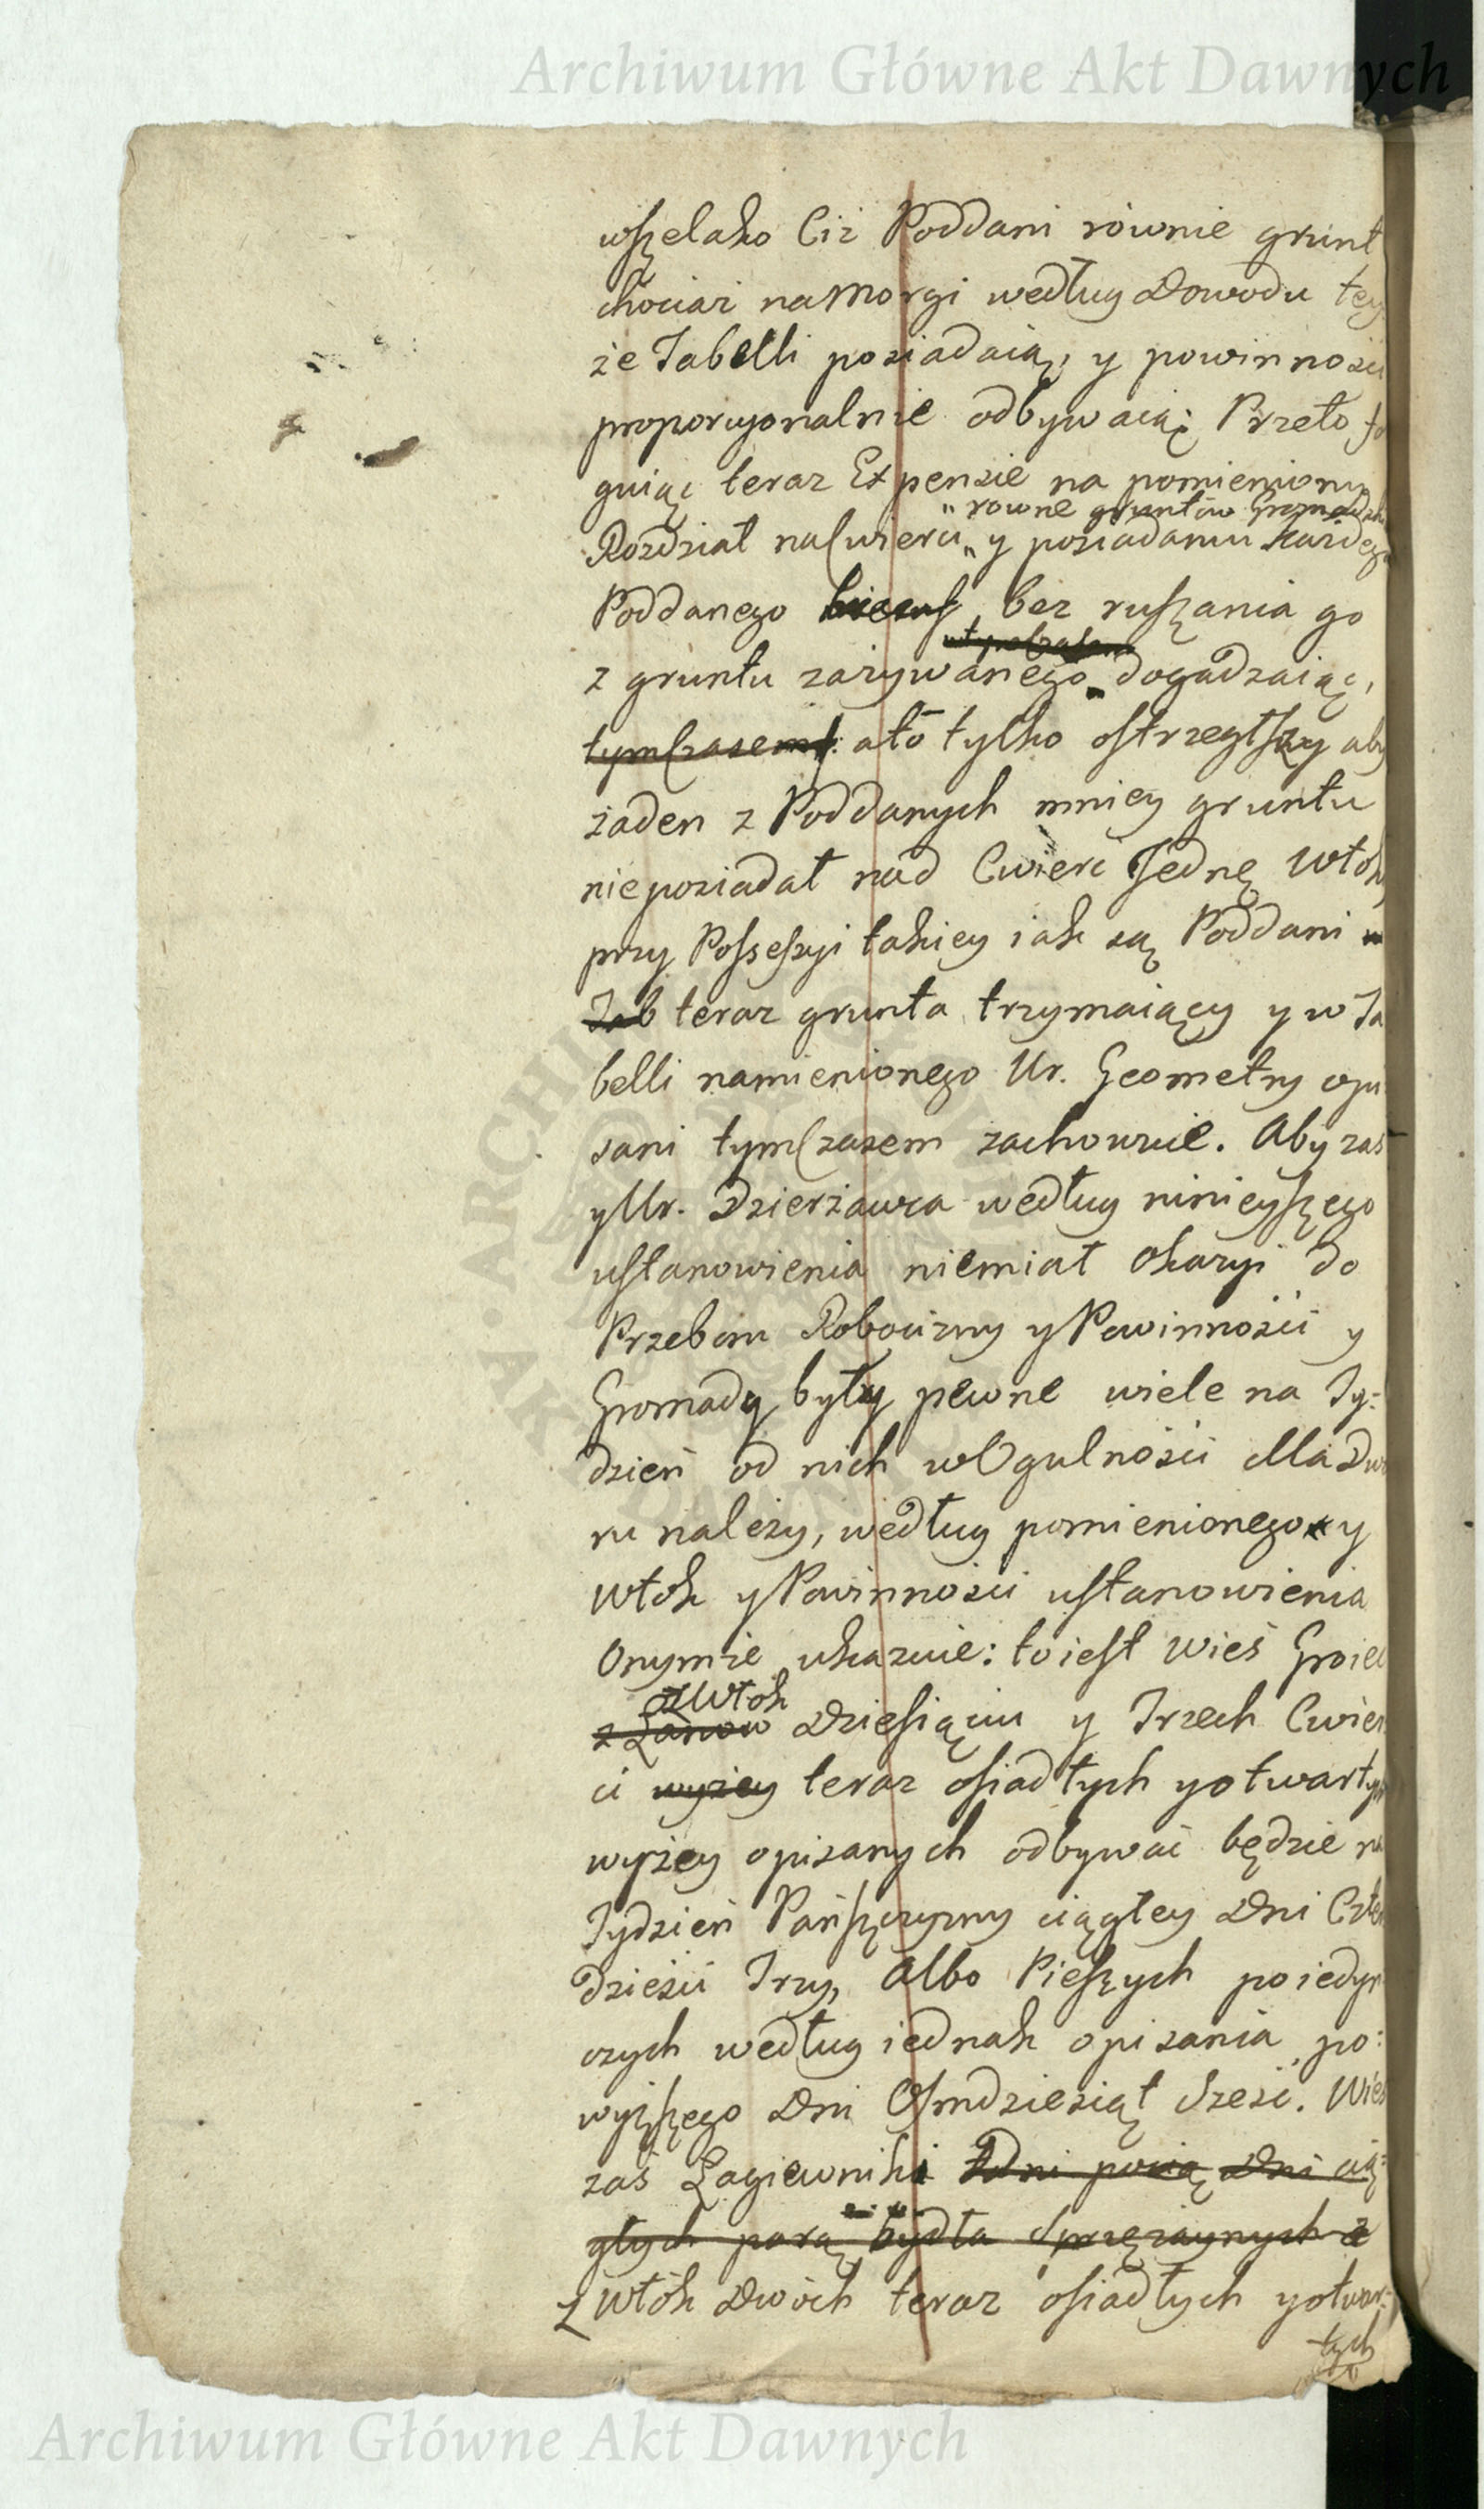 Archiwum Główne Akt Dawnych
wszelako Ciż Poddani równie grunt
chociaż na Morgi według Dowodu tey
że Tabelli posiadaią, y powinności
proporcyonalnie odbywaią: Przeto fo
guiąc teraz Expensie na pomieniony
"rowne gruntów
Rozdział na Cwierci „ y posiadaniu każdego
Poddanego bez ruszania go
z gruntu zażywanego dogadzaiąc,
tymczasem: a to tylko ostrzegłszy aby
żaden z Poddanych mniey gruntu
nieposiadał nad Cwierć Jednę Włoki
przy Possessyi takiey iak są Poddani w
Tab teraz grunta trzymaiący y w Ta
belli namienionego Ur. Geometry opi
sani tymczasem zachowuie. Aby zaś
y Ur. Dzierżawca według ninieyszego
ustanowienia niemiał Okazyi do
Przeboru Robocizny y Powinności y
Gromady były pewne wiele na Ty:
dzień od nich w Ogulności dla Dwo
ru należy, według pomienionego y
Włok y Powinności ustanowienia
Onymże ukazuie: to iest Wieś Groiec
z Włok
z Łanow Dziesiąciu y Trzech Cwier
ci wyżey teraz osiadłych y otwartych
wyżey opisanych odbywać będzie na
Tydzień Pańszczyzny ciągłey Dni Czter
dzieści Trzy, Albo Pieszych poiedyn
czych według iednak opisania po:
wyższego Dni Osmdziesiąt Sześć. Wieś
zaś Łagiewniki Dni cią:
głych parą bydła sprzężaynych z
z Włók Dwóch teraz osiadłych y otwar:
tych
Archiwum Główne Akt Dawnych